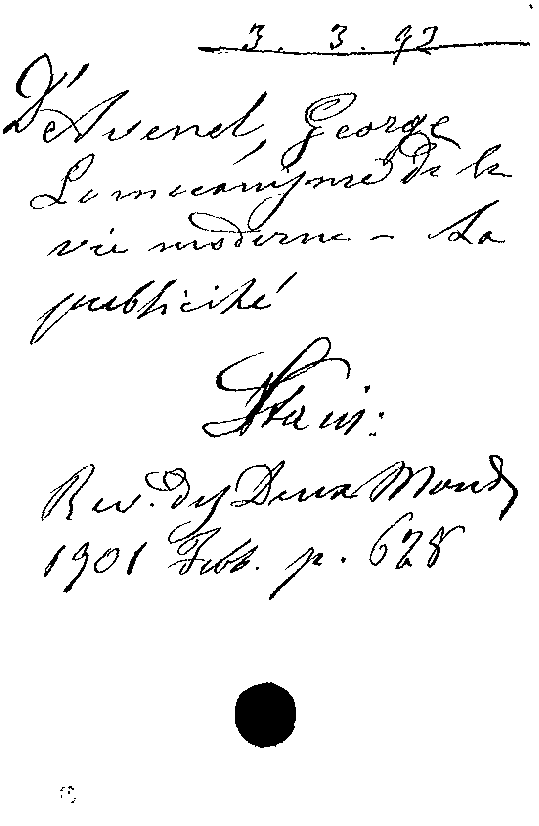 3. 3. 92
D'Avenel, George
Le mécanisme de la
vie moderne - La
publicité
Rev. des Deux Mondes
1901 Febb. p. 628